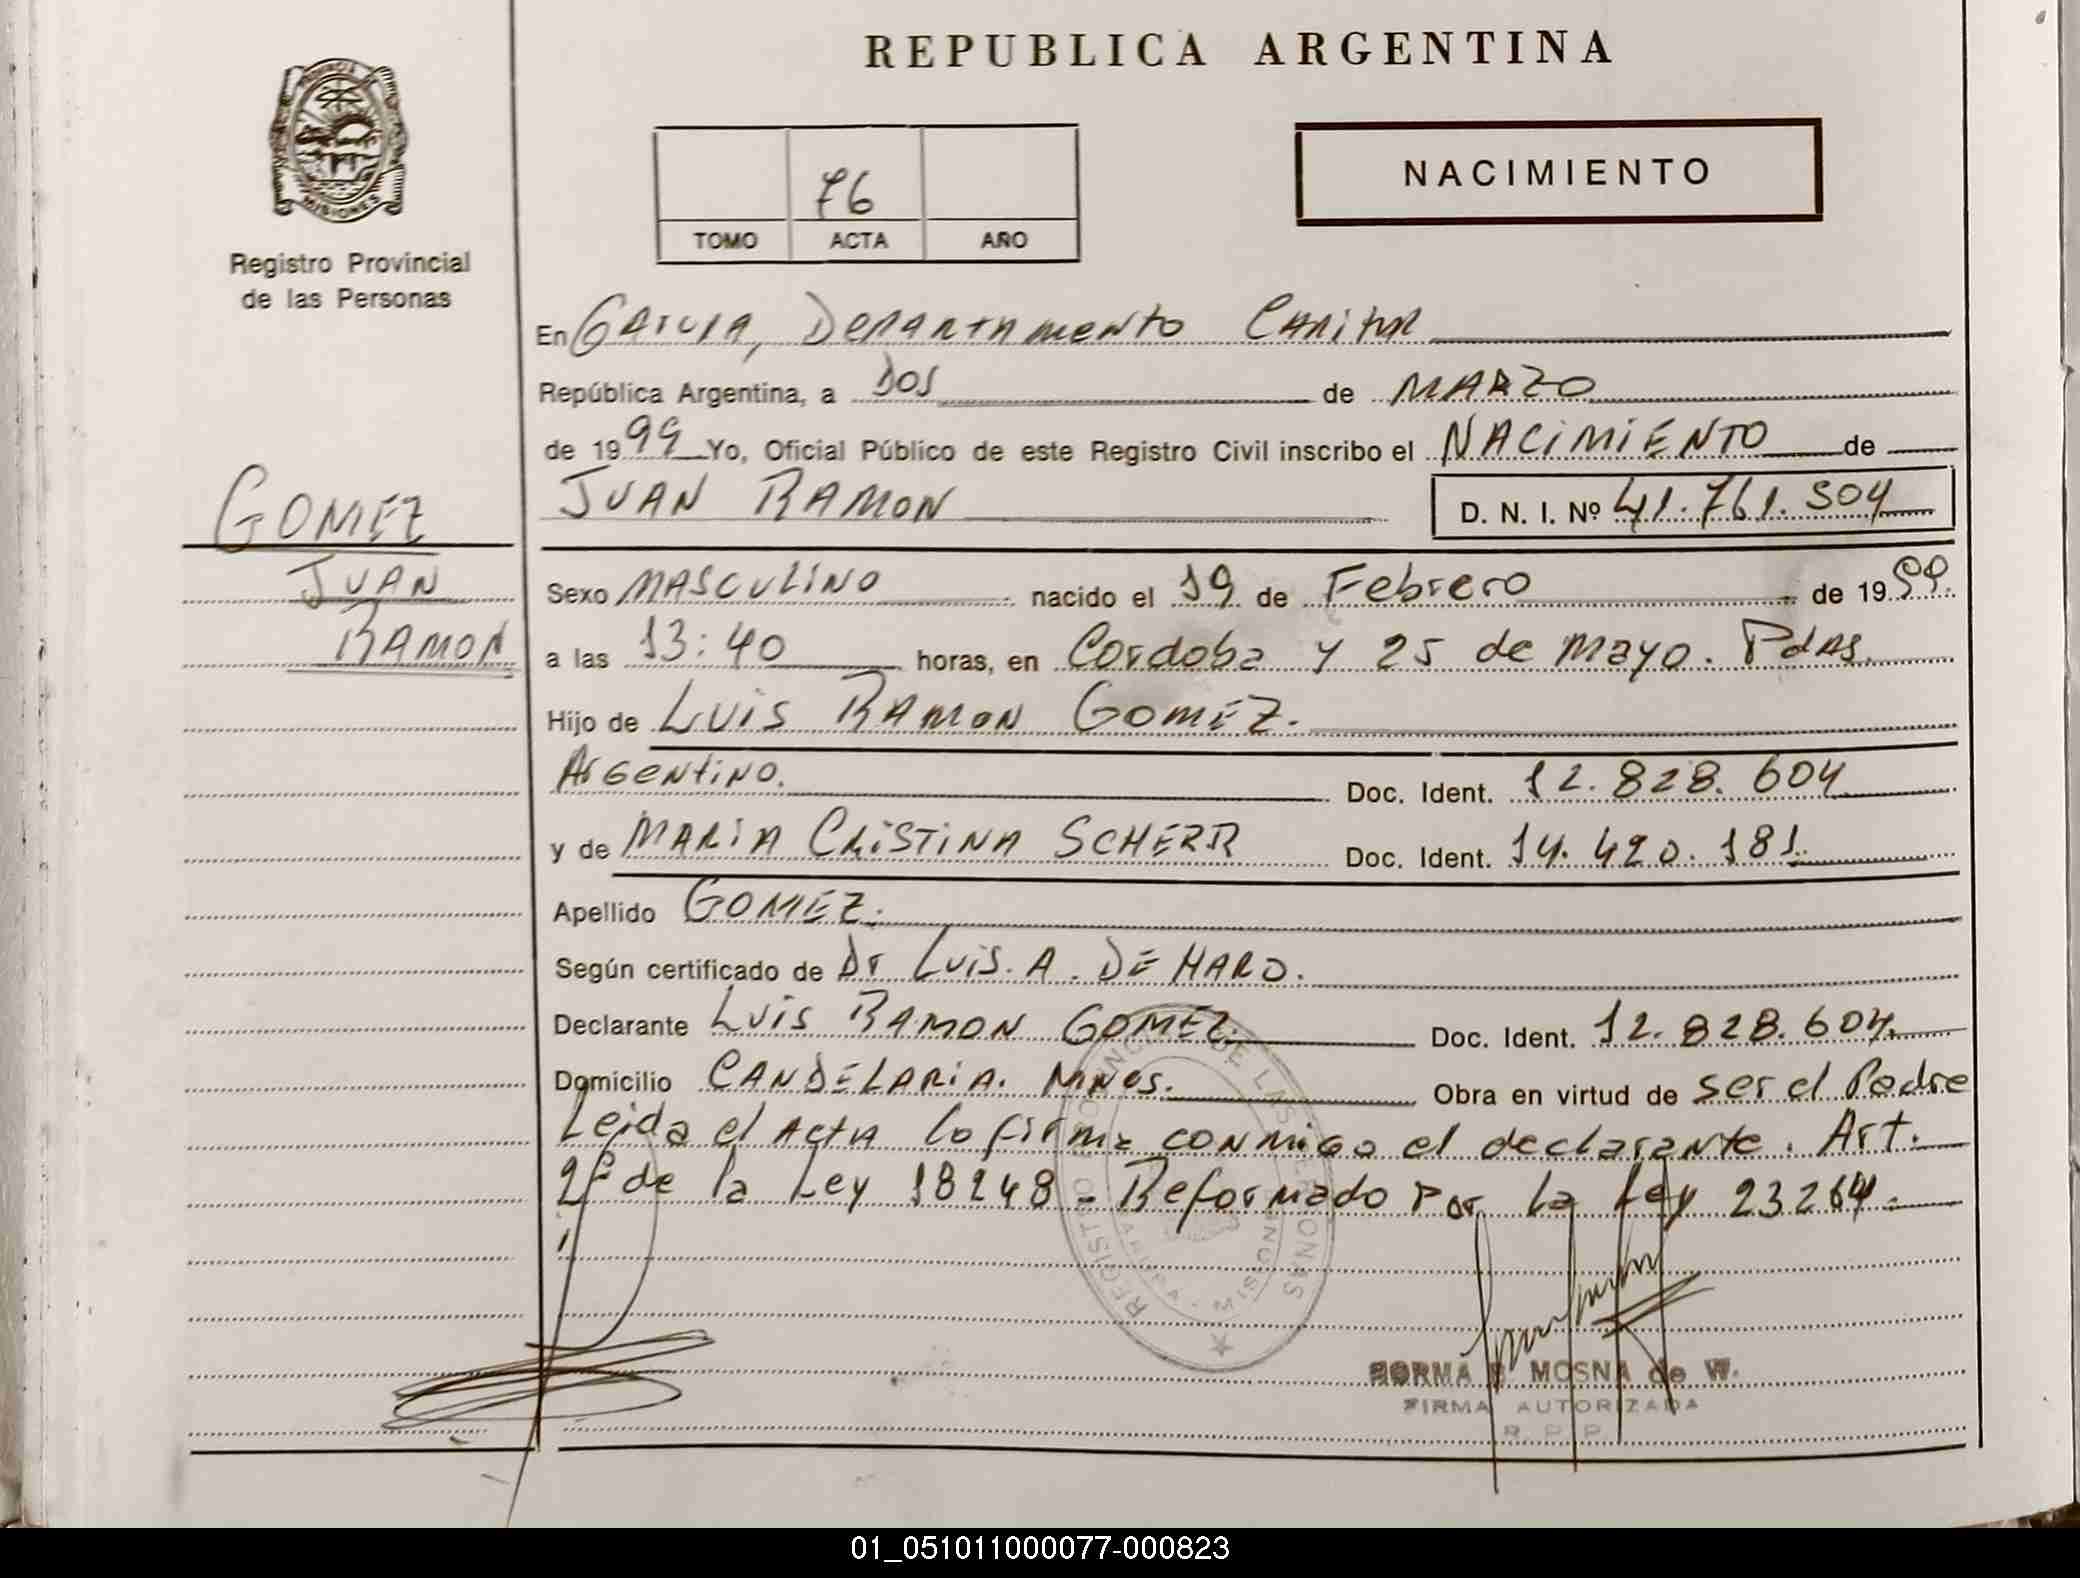 REPUBLICA ARGENTINA
PROVINCIA DE
MISIONES
Registro Provincial
de las Personas
76
TOMO ACTA AÑO
NACIMIENTO
En Garupa, Departamento Capital
República Argentina, a DOS de MARZO
de 1999 Yo, Oficial Público de este Registro Civil inscribo el NACIMIENTO de
JUAN RAMON D. N. I. Nº 41.761.504
GOMEZ
JUAN
RAMON
Sexo MASCULINO nacido el 19 de Febrero de 1999.
a las 13:40 horas, en Cordoba y 25 de Mayo. Pdas.
Hijo de LUIS RAMON GOMEZ.
Argentino. Doc. Ident. 12.828.604
y de MARIA CRISTINA SCHERR Doc. Ident. 14.420.181.
Apellido GOMEZ.
Según certificado de Dr LUIS. A. DE HARO.
Declarante LUIS RAMON GOMEZ. Doc. Ident. 12.828.604.
Domicilio CANDELARIA. MNES. Obra en virtud de ser el Padre
Leida el Acta la firma conmigo el declarante. Art.
2º de la Ley 18248 - Reformado por la Ley 23264.
REGISTRO PROVINCIAL DE LAS PERSONAS
GARUPA - MISIONES
NORMA B. MOSNA de W.
FIRMA AUTORIZADA
R. P. P.
01_051011000077-000823